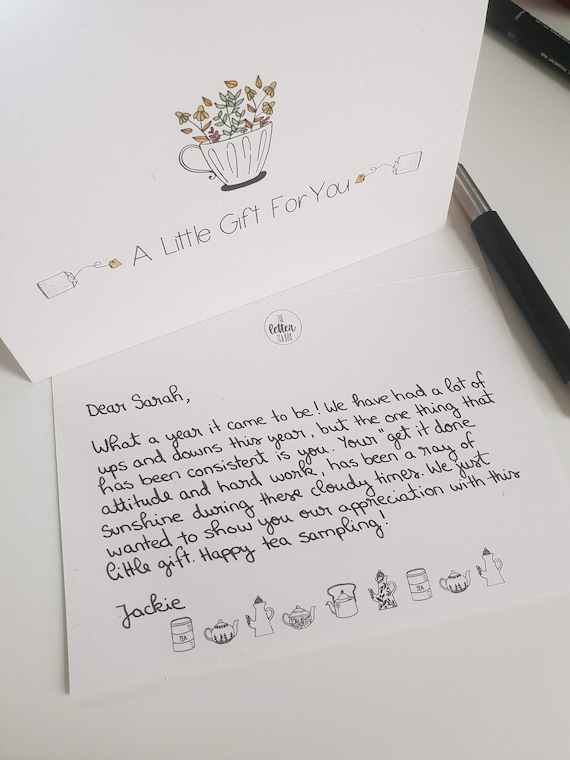 A Little Gift For You
THE
letter
TEA BOX
Dear Sarah,
What a year it came to be! We have had a lot of
ups and downs this year, but the one thing that
has been consistent is you. Your "get it done
attitude and hard work, has been a ray of
sunshine during these cloudy times. We just
wanted to show you our appreciation with this
little gift. Happy tea sampling!
Jackie
TEA
TEA